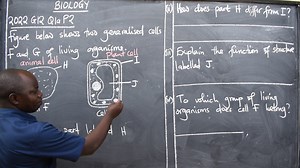 BIOLOGY
2022 G2 Q10 P2
figure below shows two generalised cells
F and G of living organisms.
animal cell
plant cell
H
I
J
F
Cell
part labelled H
How does part H differ from I?
Explain the function of structure
labelled J.
To which group of living
organisms does cell F belong?